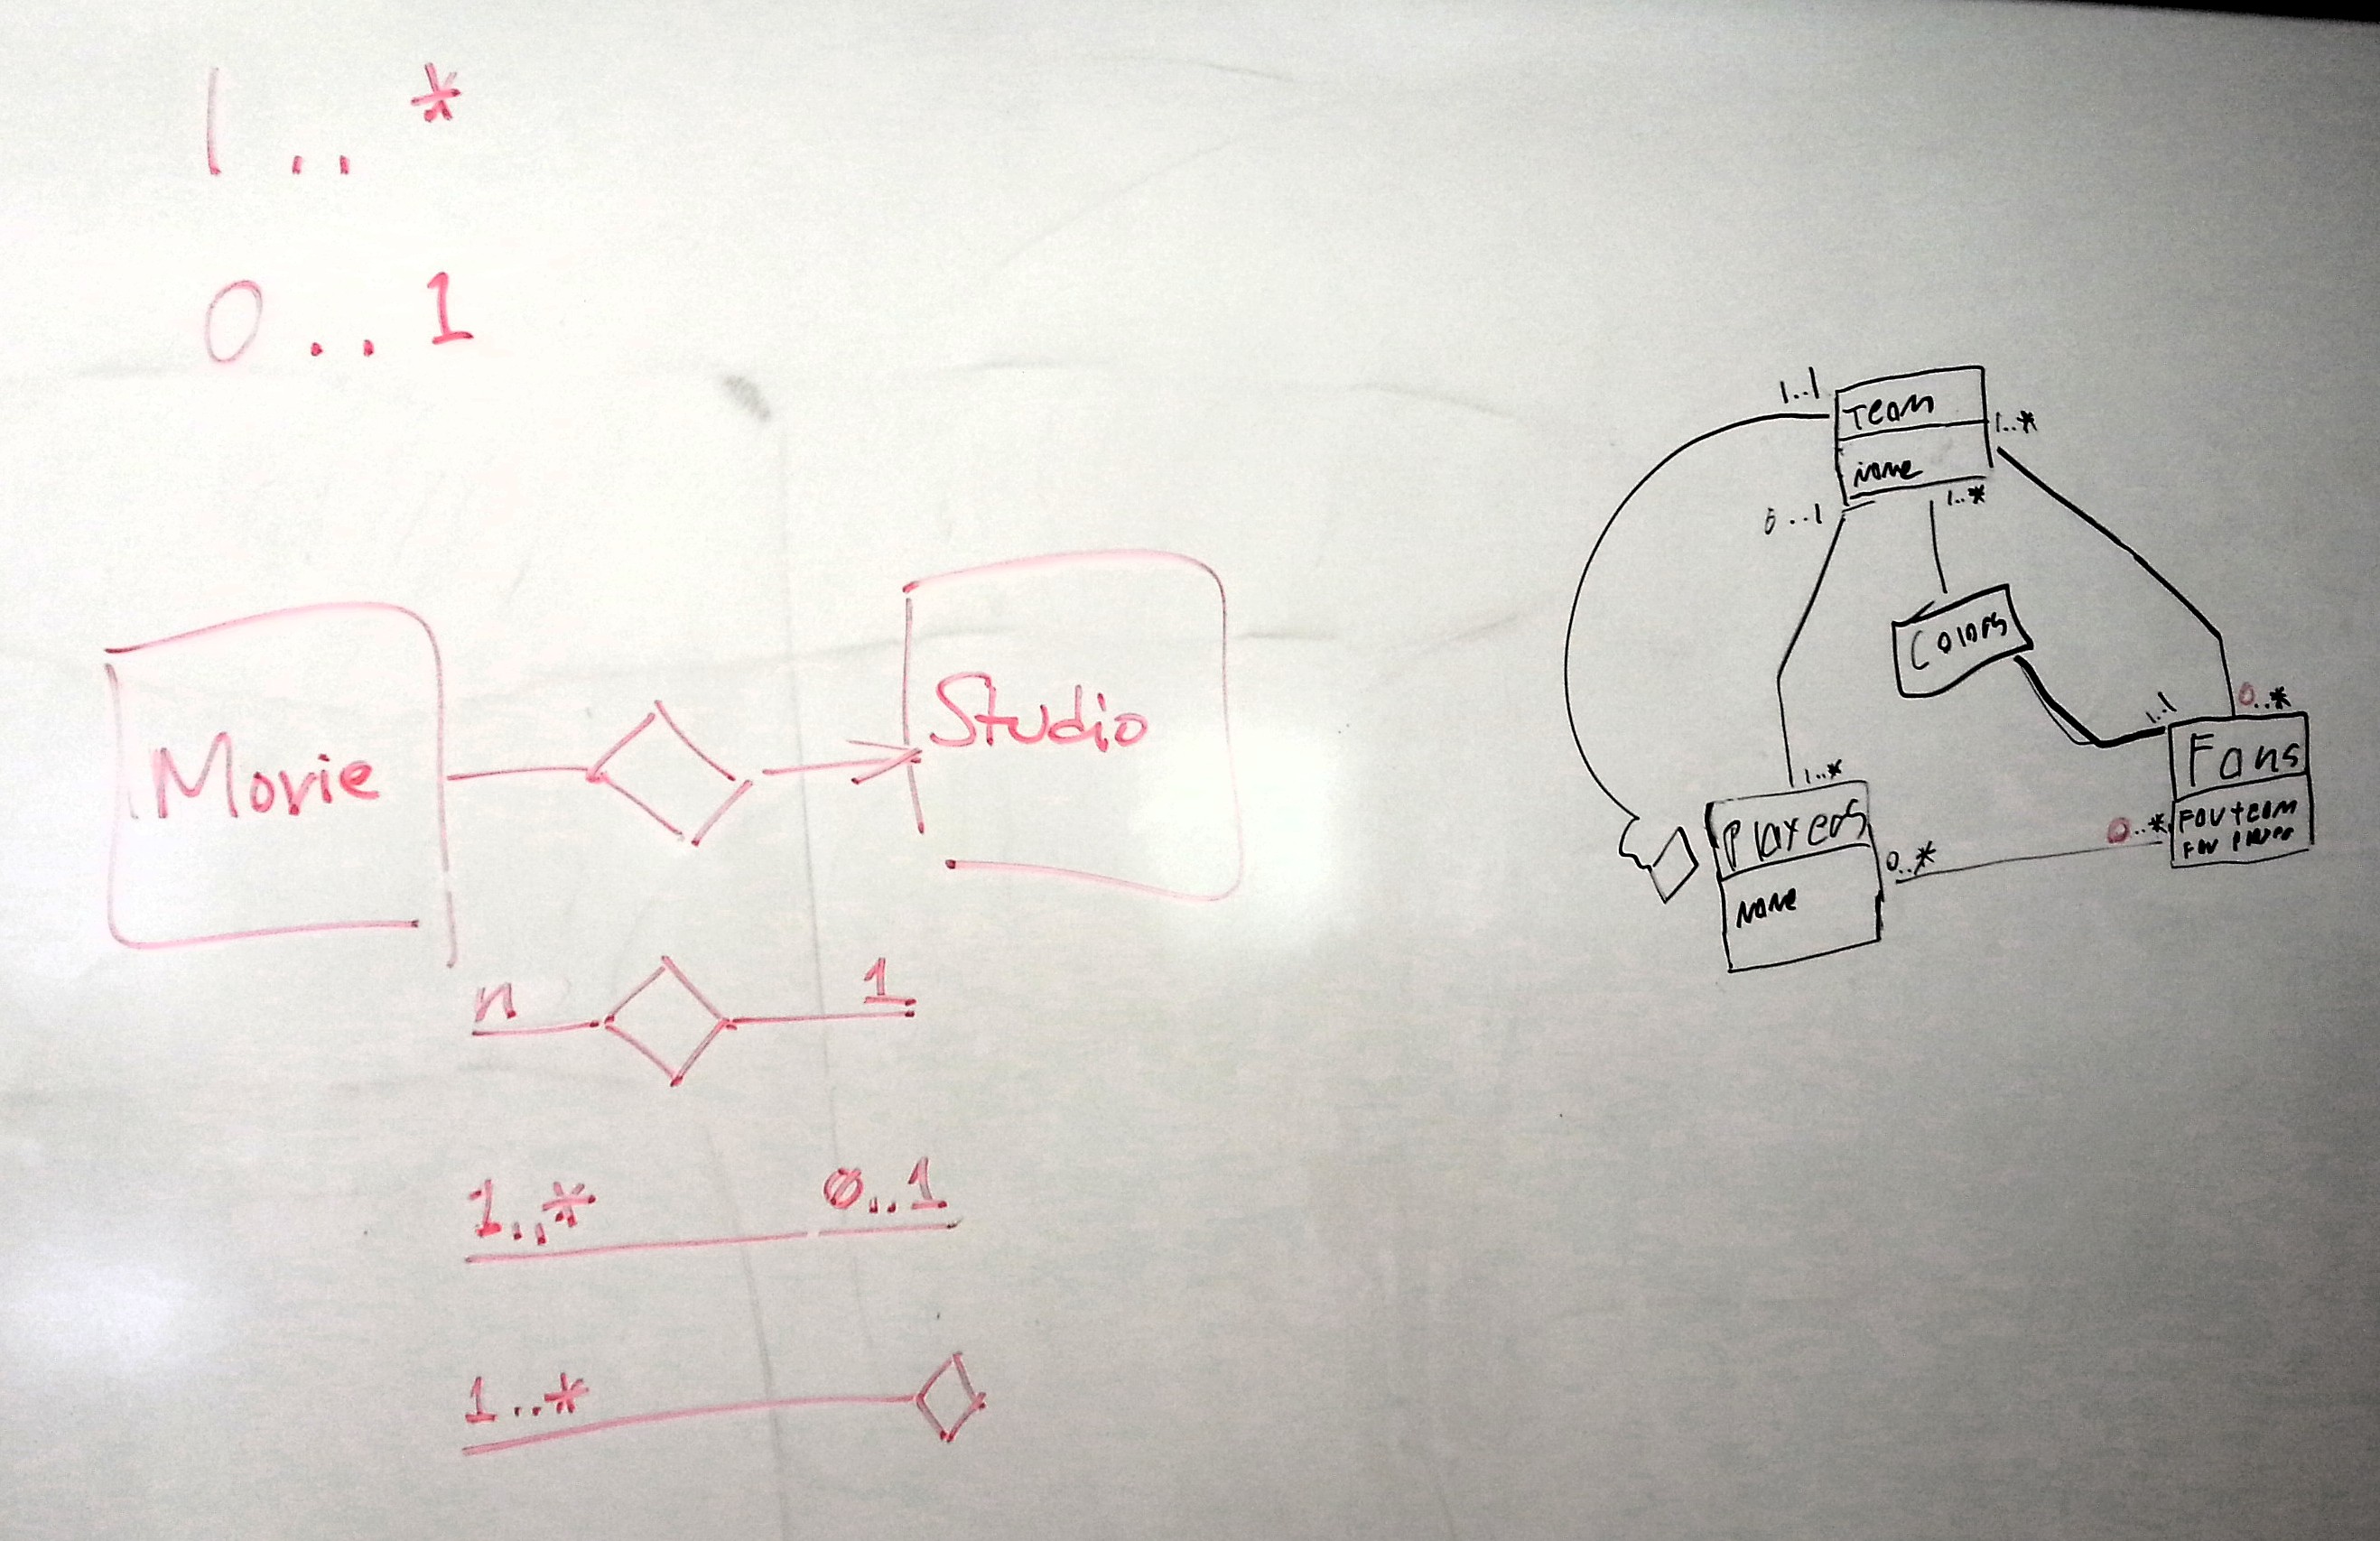 1..*
0..1
Movie
Studio
n 1
1..* 0..1
1..*
1..1
Team
1..*
Name
0..1
1..*
Colors
1..1
0..*
Fans
Fav team
Fav
0..*
1..*
Players
0..*
Name